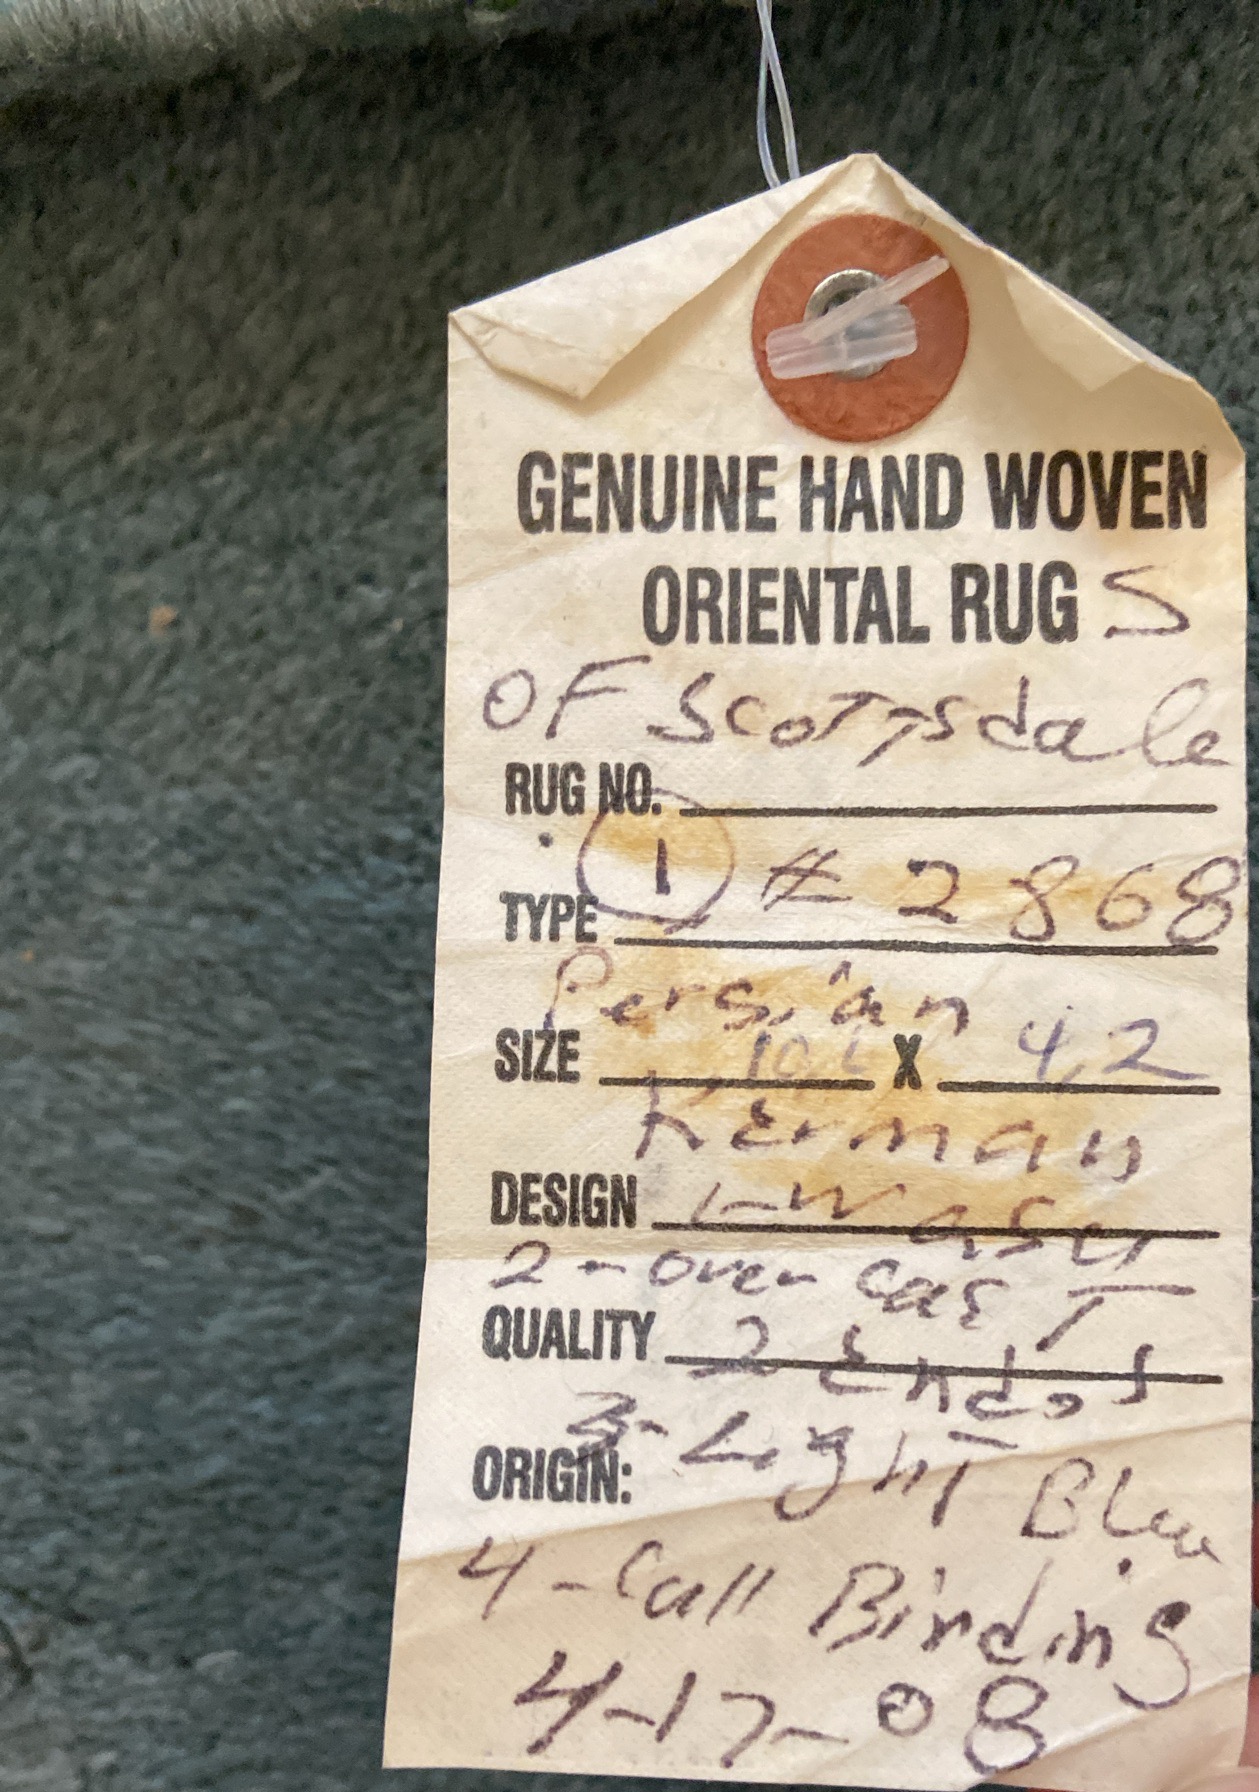 GENUINE HAND WOVEN
ORIENTAL RUG S
OF Scottsdale
RUG NO.
1 # 2868
TYPE
Persian
SIZE X 4,2
Kerman
DESIGN 1-Wash
2-over cast
QUALITY 2 Ends
3-Light Blue
ORIGIN:
4-Call Binding
4-17-08